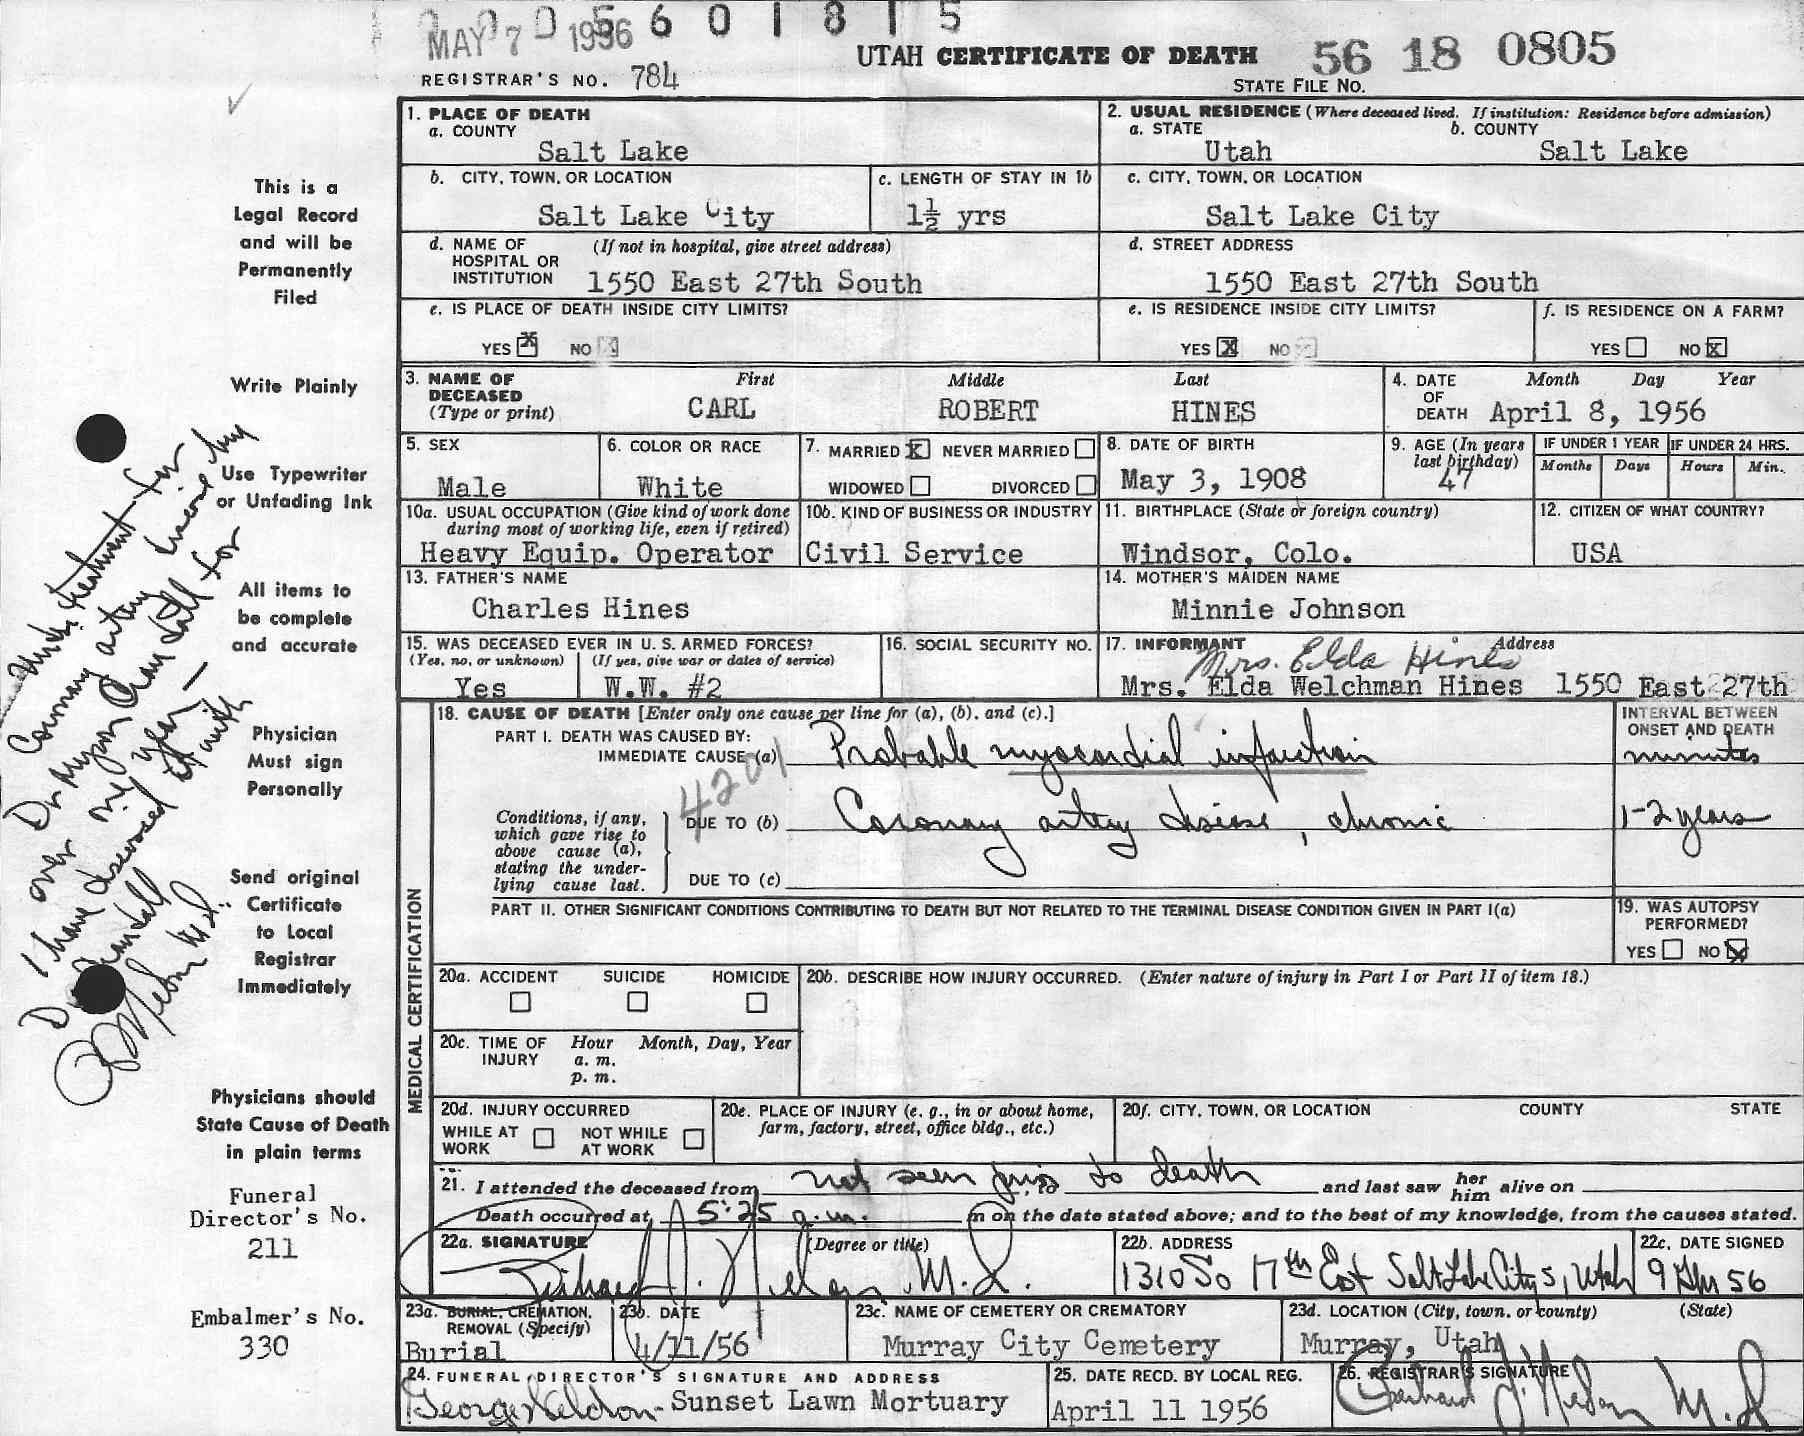 0 0 5 6 0 1 8 1 5
MAY 7 1956
UTAH CERTIFICATE OF DEATH 56 18 0805
REGISTRAR'S NO. 784
STATE FILE NO.
1. PLACE OF DEATH
a. COUNTY
Salt Lake
2. USUAL RESIDENCE (Where deceased lived. If institution: Residence before admission)
a. STATE b. COUNTY
Utah Salt Lake
b. CITY, TOWN, OR LOCATION
Salt Lake City
c. LENGTH OF STAY IN 1b
1½ yrs
c. CITY, TOWN, OR LOCATION
Salt Lake City
d. NAME OF (If not in hospital, give street address)
HOSPITAL OR
INSTITUTION 1550 East 27th South
d. STREET ADDRESS
1550 East 27th South
e. IS PLACE OF DEATH INSIDE CITY LIMITS?
YES X NO
e. IS RESIDENCE INSIDE CITY LIMITS?
YES X NO
f. IS RESIDENCE ON A FARM?
YES NO X
3. NAME OF DECEASED (Type or print)
First Middle Last
CARL ROBERT HINES
4. DATE OF DEATH
Month Day Year
April 8, 1956
5. SEX
Male
6. COLOR OR RACE
White
7. MARRIED X NEVER MARRIED
WIDOWED DIVORCED
8. DATE OF BIRTH
May 3, 1908
9. AGE (In years last birthday)
47
IF UNDER 1 YEAR IF UNDER 24 HRS.
Months Days Hours Min.
10a. USUAL OCCUPATION (Give kind of work done
during most of working life, even if retired)
Heavy Equip. Operator
10b. KIND OF BUSINESS OR INDUSTRY
Civil Service
11. BIRTHPLACE (State or foreign country)
Windsor, Colo.
12. CITIZEN OF WHAT COUNTRY?
USA
13. FATHER'S NAME
Charles Hines
14. MOTHER'S MAIDEN NAME
Minnie Johnson
15. WAS DECEASED EVER IN U. S. ARMED FORCES?
(Yes, no, or unknown) (If yes, give war or dates of service)
Yes W.W. #2
16. SOCIAL SECURITY NO.
17. INFORMANT Address
Mrs. Elda Hines
Mrs. Elda Welchman Hines 1550 East 27th
MEDICAL CERTIFICATION
18. CAUSE OF DEATH [Enter only one cause per line for (a), (b), and (c).]
PART I. DEATH WAS CAUSED BY:
IMMEDIATE CAUSE (a) Probable myocardial infarction
4201
INTERVAL BETWEEN
ONSET AND DEATH
minutes
Conditions, if any,
which gave rise to
above cause (a),
stating the under-
lying cause last.
DUE TO (b) Coronary artery disease, chronic
1-2 years
DUE TO (c)
PART II. OTHER SIGNIFICANT CONDITIONS CONTRIBUTING TO DEATH BUT NOT RELATED TO THE TERMINAL DISEASE CONDITION GIVEN IN PART I(a)
19. WAS AUTOPSY
PERFORMED?
YES NO X
20a. ACCIDENT SUICIDE HOMICIDE
20b. DESCRIBE HOW INJURY OCCURRED. (Enter nature of injury in Part I or Part II of item 18.)
20c. TIME OF INJURY
Hour Month, Day, Year
a. m.
p. m.
20d. INJURY OCCURRED
WHILE AT WORK NOT WHILE AT WORK
20e. PLACE OF INJURY (e. g., in or about home,
farm, factory, street, office bldg., etc.)
20f. CITY, TOWN, OR LOCATION COUNTY STATE
21. I attended the deceased from not seen prior, to to death and last saw her him alive on
Death occurred at 5:25 a.m. m on the date stated above; and to the best of my knowledge, from the causes stated.
22a. SIGNATURE (Degree or title)
M.D.
22b. ADDRESS
1310 So 17th East Salt Lake City 5, Utah
22c. DATE SIGNED
9 Apr 56
23a. BURIAL, CREMATION,
REMOVAL (Specify)
Burial
23b. DATE
4/11/56
23c. NAME OF CEMETERY OR CREMATORY
Murray City Cemetery
23d. LOCATION (City, town, or county) (State)
Murray, Utah
24. FUNERAL DIRECTOR'S SIGNATURE AND ADDRESS
Sunset Lawn Mortuary
25. DATE RECD. BY LOCAL REG.
April 11 1956
26. REGISTRAR'S SIGNATURE
M.D.
This is a
Legal Record
and will be
Permanently
Filed
Write Plainly
Use Typewriter
or Unfading Ink
All items to
be complete
and accurate
Physician
Must sign
Personally
Send original
Certificate
to Local
Registrar
Immediately
Physicians should
State Cause of Death
in plain terms
Funeral
Director's No.
211
Embalmer's No.
330
treatment for
Coronary artery disease by
Dr Myron Crandall for
over one year —
I have discussed it with
Dr Crandall